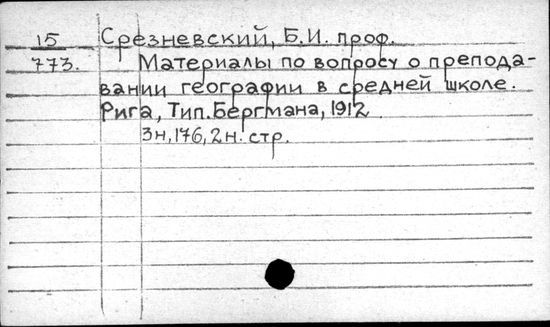 15 Срезневский, Б.И. проф.
773. Материалы по вопросу о препода-
вании географии в средней школе.
Рига, Тип.Бергмана, 1912
3н, 176, 2н. стр.